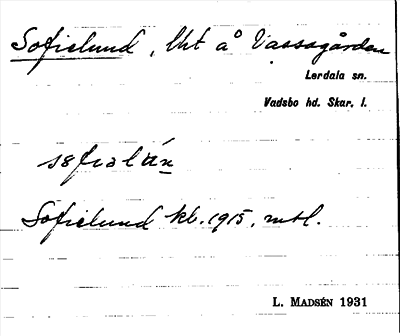 Sofielund, lht å Vassagården
Lerdala sn.
Vadsbo hd. Skar. l.
Sofielund kb. 1915, mtl.
L. MADSÉN 1931